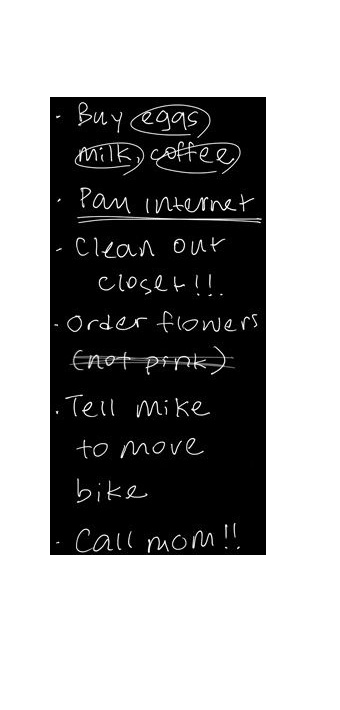 · Buy eggs
milk, coffee
· Pay internet
· Clean out
closet!!!
· Order flowers
(not pink)
· Tell mike
to move
bike
· Call mom!!